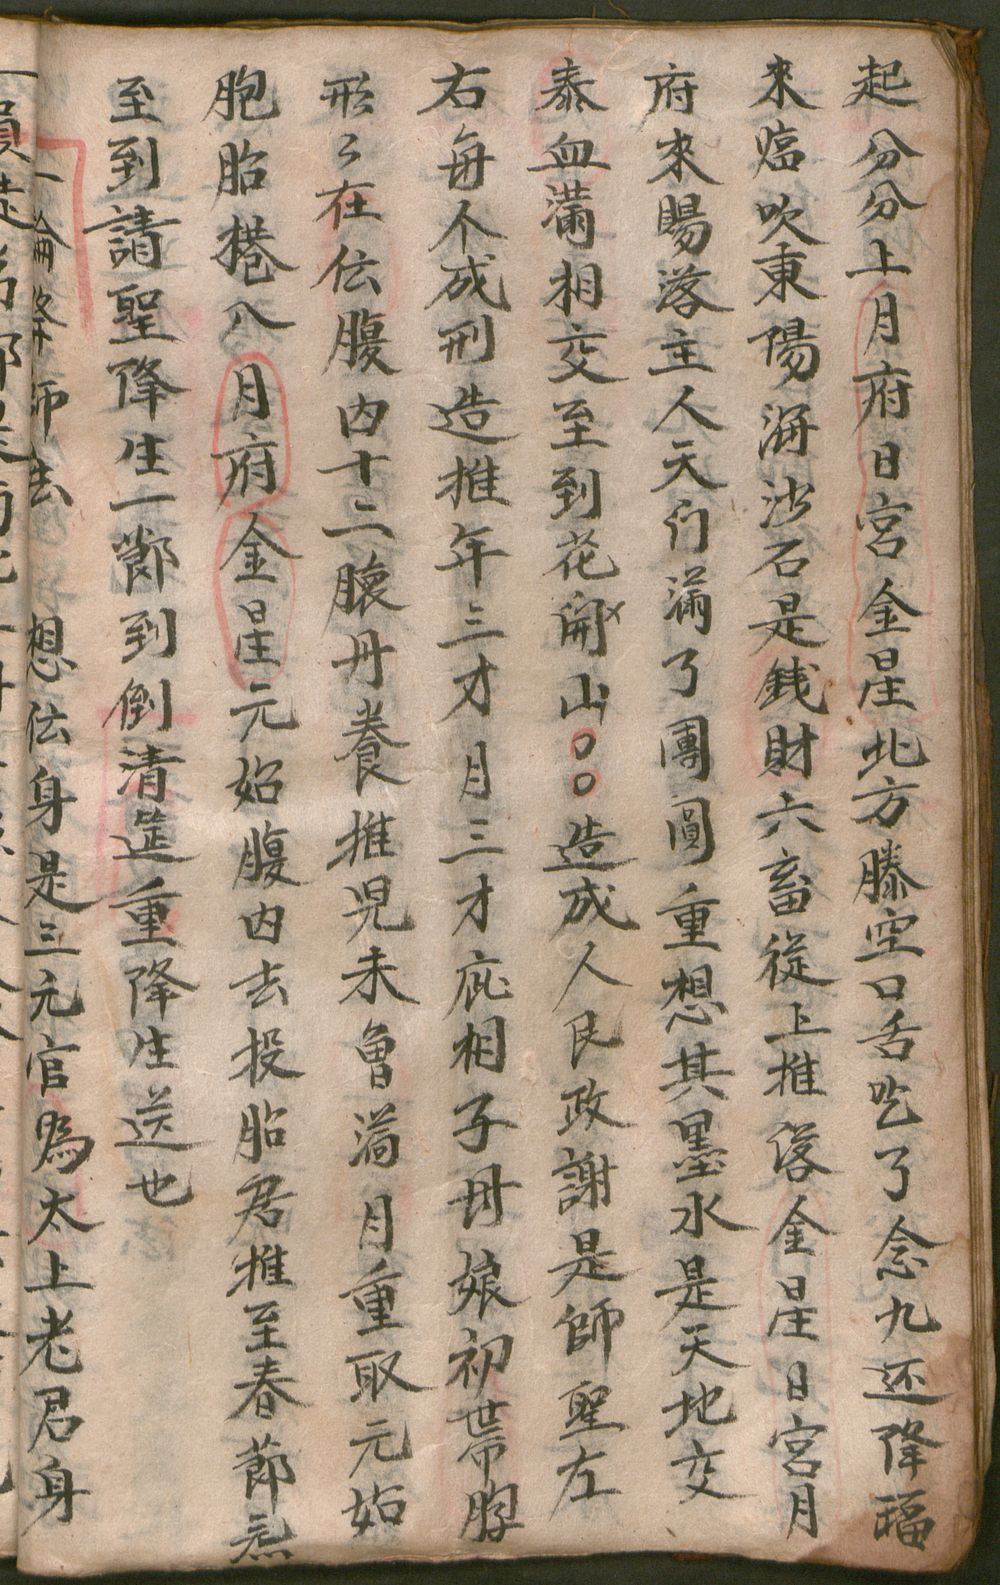 起分分上月府日宮金星北方滕空口舌吃了念九还降福
來臨吹東陽海沙石是銭財六畜從上推落金星日宮月
府來賜落主人天们滿了團圓重想其墨水是天地交
泰血滿相交至到花開山〇〇造成人民政謝是師聖左
右每个成刑造推年三才月三才庇相子母娘初世帶胞
形々在伝腹内十二膿丹養推児未曾滿月重取元始
胞胎捲入月府金星元始腹内去投胎君推至春節炁
至到請聖降生一節到倒清筵重降生送也
一論
師法 想伝身是三元官為太上老君身